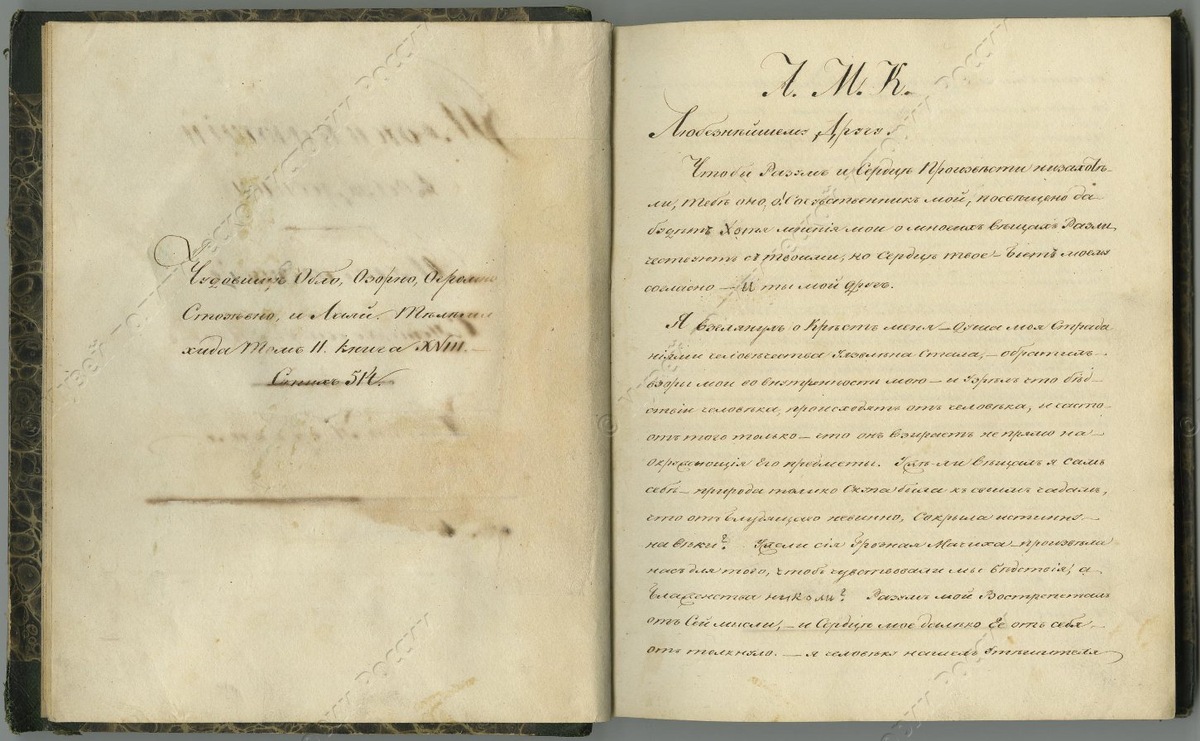 Чудовищѣ Обло, Озорно, Огромно
Стозѣвно, и Лаяй. Тилемах
хида Томъ II. книга XVIII.
Стихъ 514.
А. М. К.
Любезнѣйшему Другу.
Чтобы Разумъ и Сердцѣ Произвѣсти низахотѣ-
ли, тебѣ оно, о! Сочувственникъ мой, посвящено да
будетъ Хотя мнѣнія мои о многихъ вѣщахъ Разли
чествуютъ съ твоими, но Сердцѣ твое бьетъ моему
согласно — И ты мой другъ.
Я взглянулъ о Крѣстъ меня — душа моя Страда
ніями человѣчества Уязвлѣна Стала, — обратилъ
взоры мои во внутренность мою — и Узрѣлъ что бѣд-
ствіи человѣка, происходятъ отъ человѣка, и часто
отъ того только — что онъ взираетъ не прямо на
окружающія Его предмѣты. Ужѣ-ли вѣщалъ я самъ
себѣ — природа толико Скупа была къ своимъ чадамъ,
что отъ блудящаго невинно, Сокрыла истинну
на вѣки? Ужели сія Грозная Мачиха произвѣла
насъ для того, чтобъ чувствовали мы бѣдствія, а
блаженства николи? Разумъ мой Вострепеталъ
отъ Сей мысли, — и Сердцѣ мое далѣко Её отъ себя
отъ толкнуло. — я человѣку нашелъ Утѣшителя